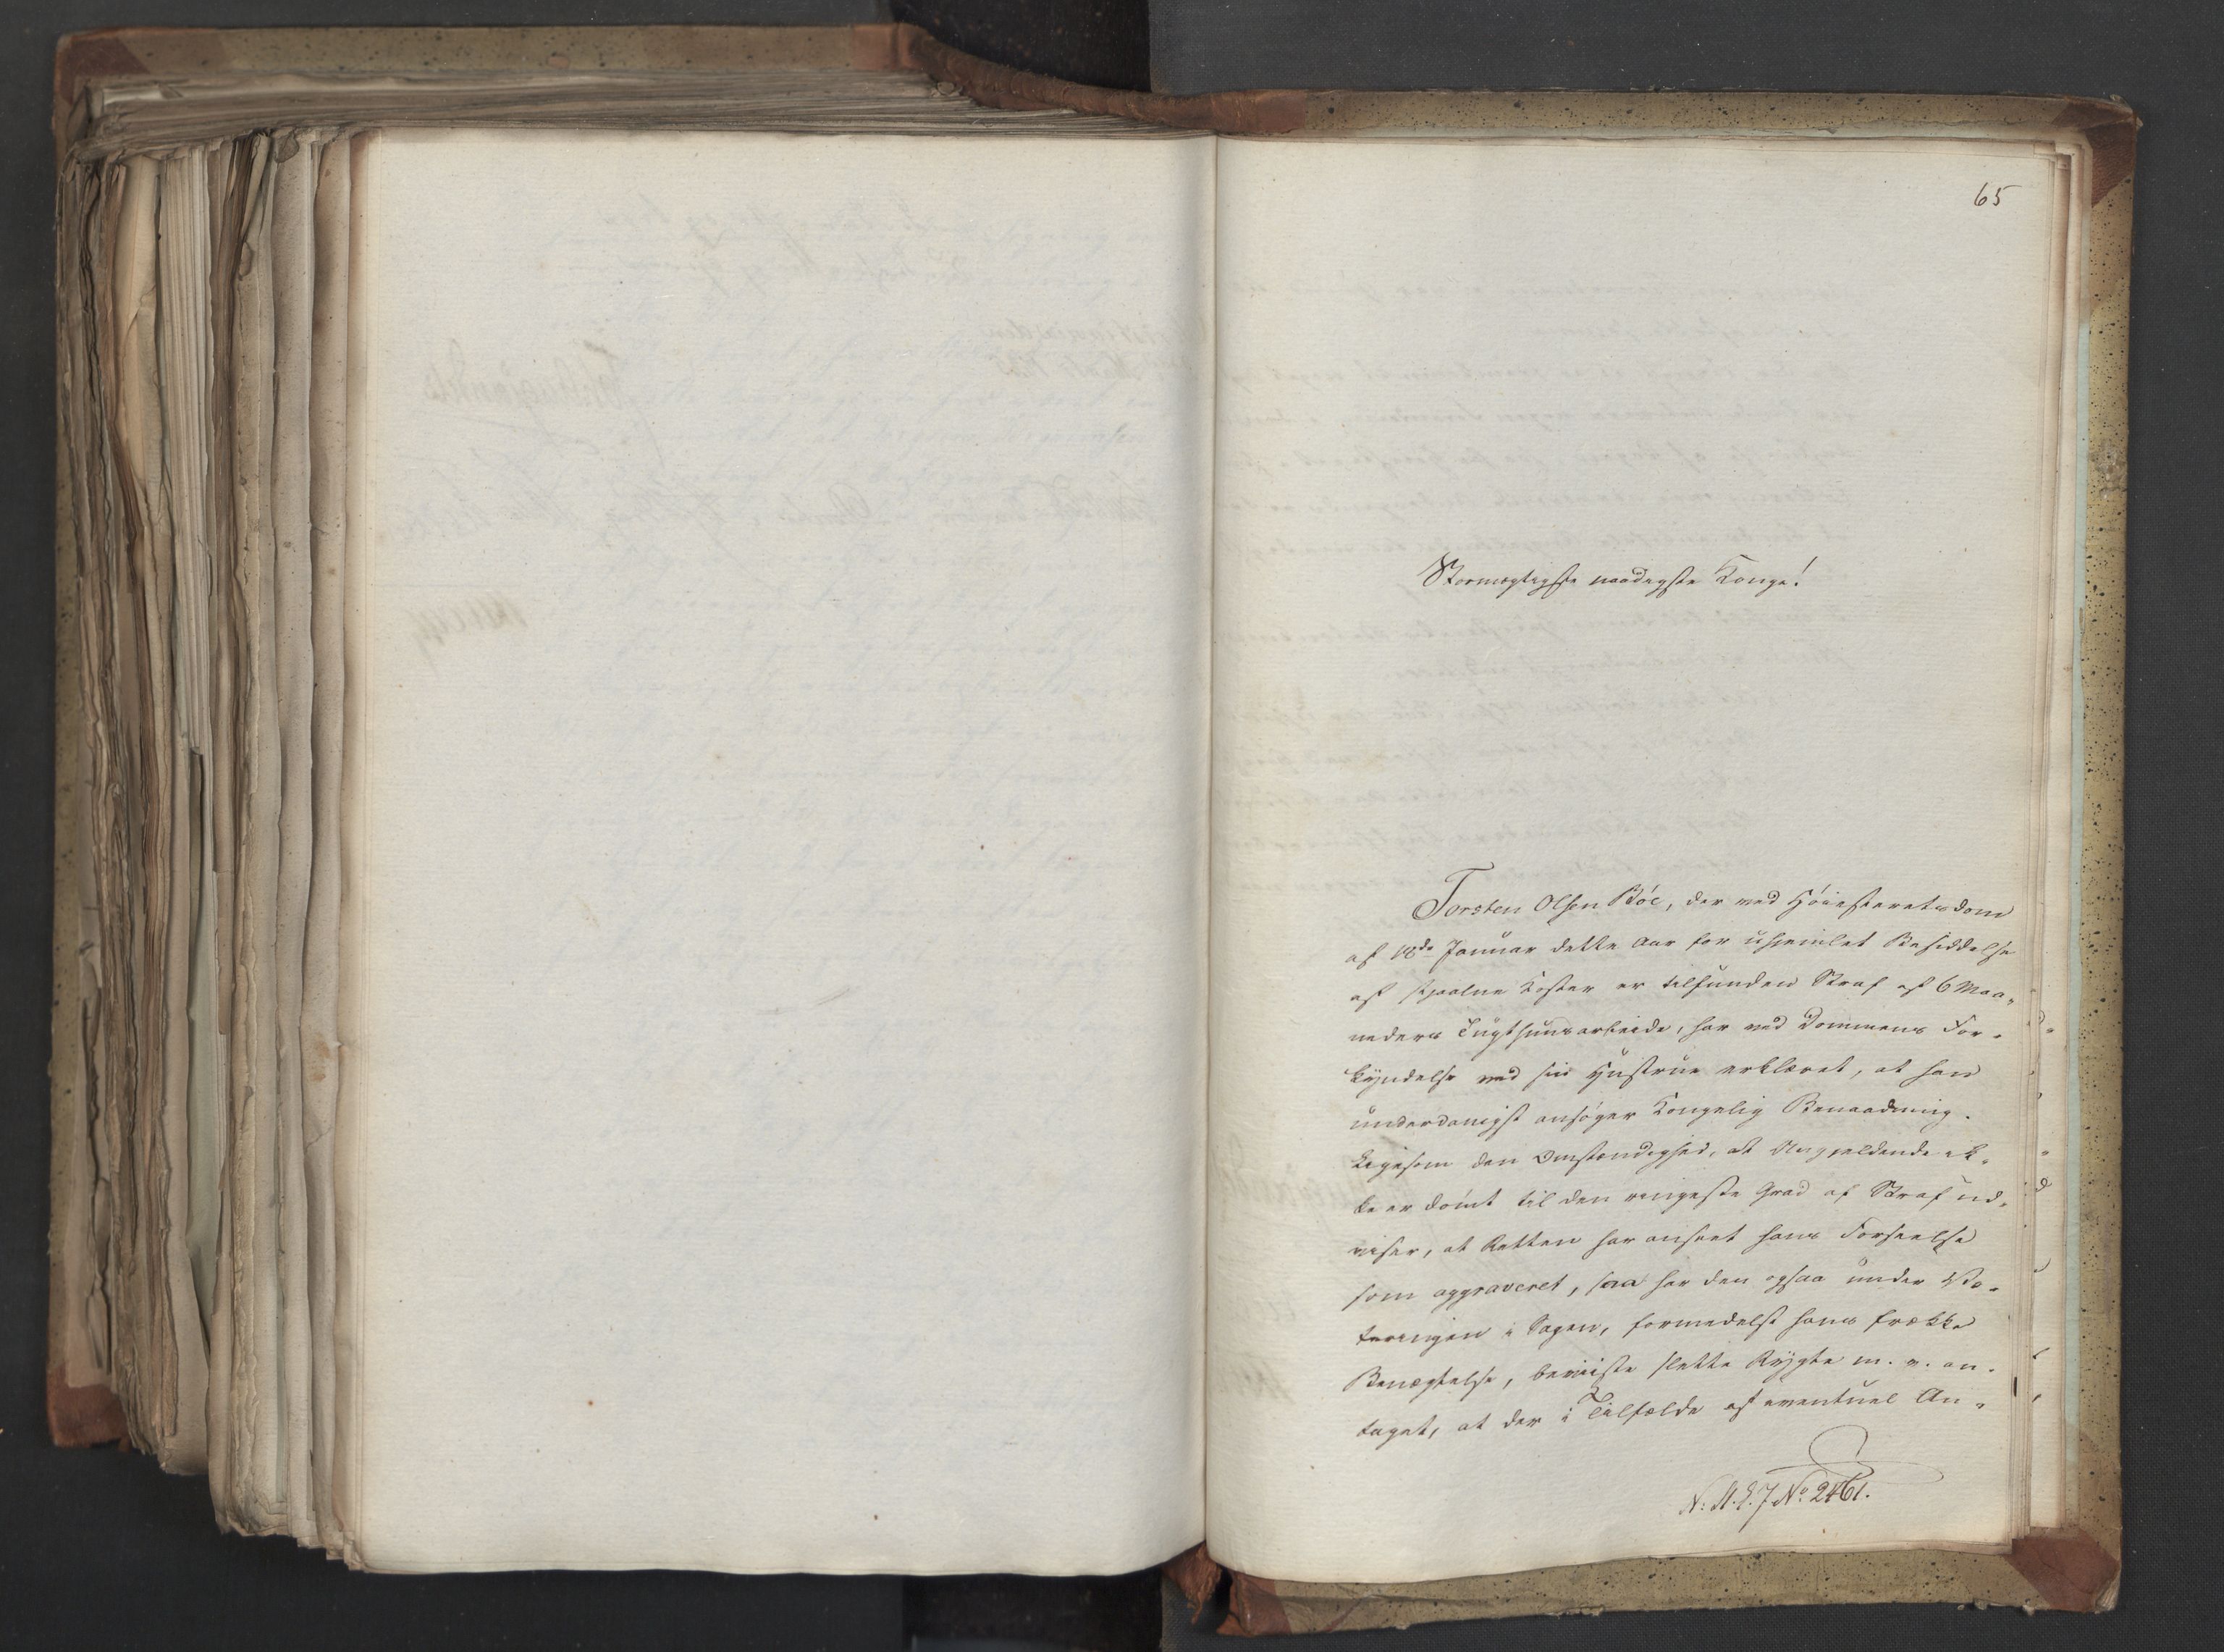 65
Stormægtigste naadigste Konge!
Torsten Olsen Böe, der ved Höiesteretsdom
af 18de Januar dette Aar for uhjemlet Besiddelse
af stjaalne Koster er tilfunden Straf af 6 Maa„
neders Tugthuusarbeide, har ved Dommens For„
kyndelse ved sin Hustrue erklæret, at han
underdanigst ansöger Kongelig Benaadning.
Ligesom den Omstændighed, at Angjeldende ik„
ke er dömt til den ringeste Grad af Straf ud„
viser, at Retten har anseet hans Forseelse
som aggraveret, saa har den ogsaa under Vo„
teringen i Sagen, formedelst hans frække
Benægtelse, beviiste slette Rygte m. v. an„
taget, at der i Tilfælde af eventuel An„
N: A. E. J No 2461.